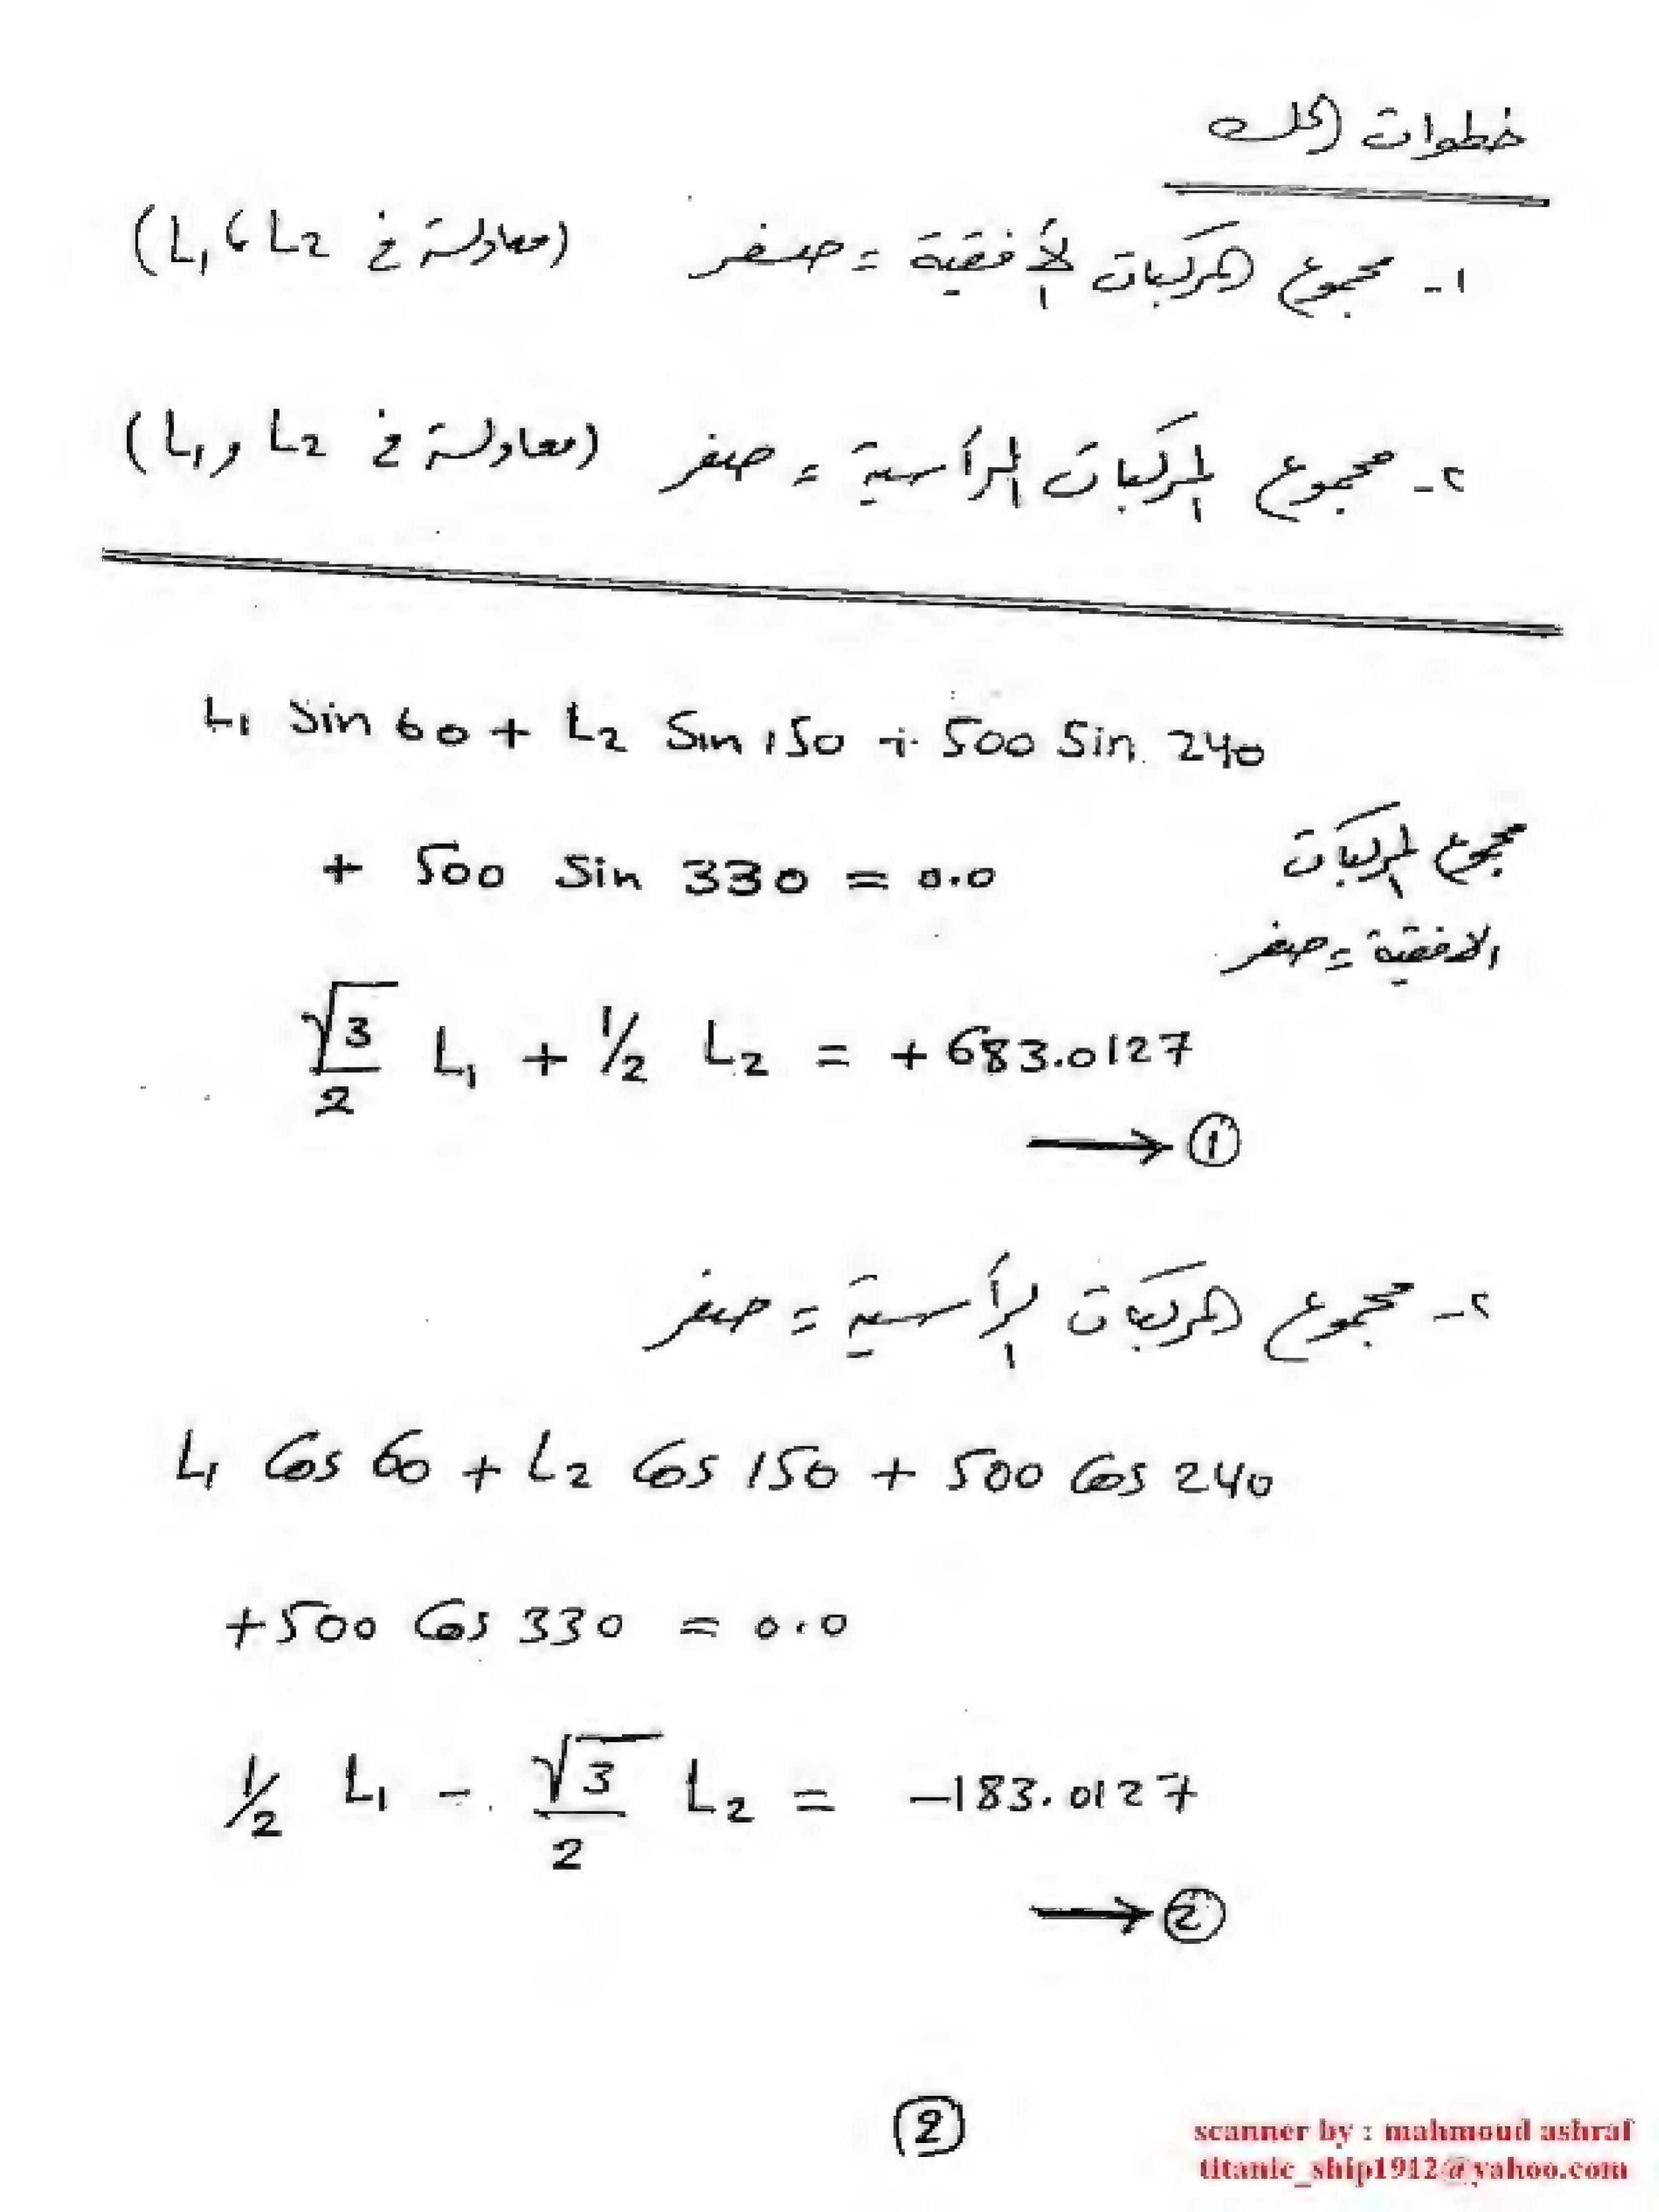 خطوات الحل
١- مجموع المركبات الأفقية = صفر (معادلة في L1 ، L2)
٢- مجموع المركبات الرأسية = صفر (معادلة في L1 و L2)
L1 Sin 60 + L2 Sin 150 + 500 Sin 240
+ 500 Sin 330 = 0.0
مجموع المركبات
الافقية = صفر
√3/2 L1 + 1/2 L2 = + 683.0127
→ ①
٢- مجموع المركبات الرأسية = صفر
L1 Cos 60 + L2 Cos 150 + 500 Cos 240
+ 500 Cos 330 = 0.0
1/2 L1 - √3/2 L2 = -183.0127
→ ②
②
scanner by : mahmoud ashraf
titanic_ship1912@yahoo.com